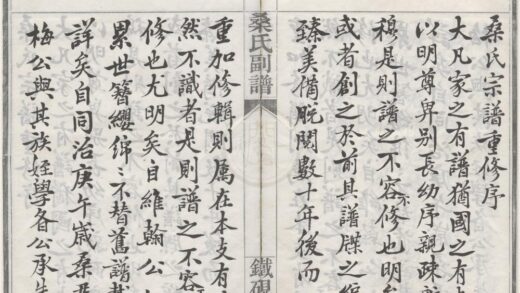 桑氏宗譜重修序
大凡家之有譜猶國之有
以明尊卑别長幼序親疎
穆是則譜之不容不修也明
或者創之於前其譜牒之
臻美備脱閲數十年後而
桑氏副譜
鐵硯
重加修輯則属在本支有
然不識者是則譜之不容
修也尤明矣自維翰公
累世簪纓綿綿不替舊譜
詳矣自同治庚午嵗桑
梅公與其族姪學各公承